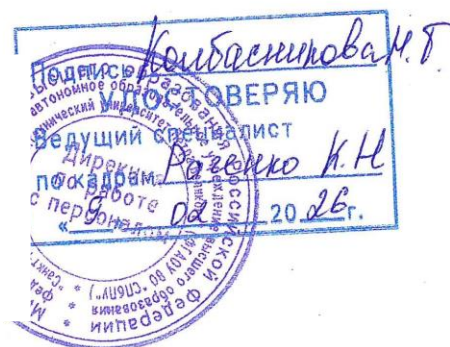 Подпись Колбасникова Н.Г.
УДОСТОВЕРЯЮ
Ведущий специалист
по кадрам Раченко К.Н
«9» 02 2026г.
Дирекция
по работе
с персоналом
Российской Федерации
высшего образования
(ФГАОУ ВО "СПбПУ")